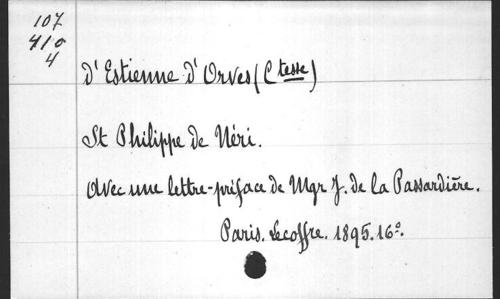 107
410
4
d'Estienne d'Orves (Ctesse)
St Philippe de Néri.
Avec une lettre-préface de Mgr J. de la Passardière.
Paris. Lecoffre. 1895. 16º.